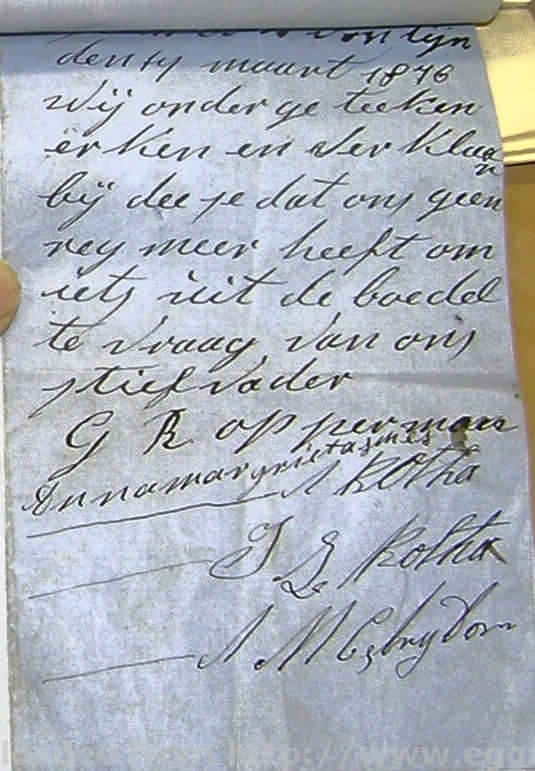 den 14 maart 1876
wij onder ge teeken
erken en ver klaar
bij dee se dat ons geen
reg meer heeft om
iets uit de boedel
te vraag van ons
stief vader
G R opperman
Annamargrietasmes
A Botha
J L Botha
A M C
http://www.egg